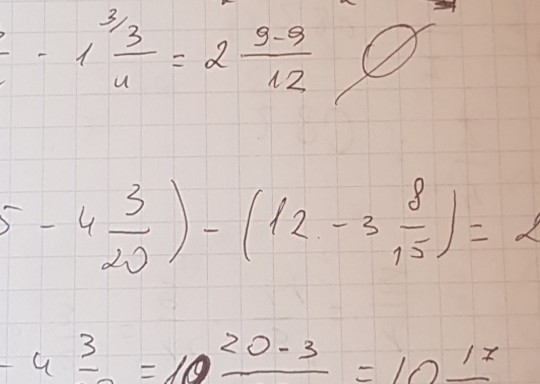 - 1 3/ 3/4 = 2 9-9/12 Ø
5 - 4 3/20 ) - ( 12 - 3 8/15 ) = 2
- 4 3 = 10 20-3 = 10 17